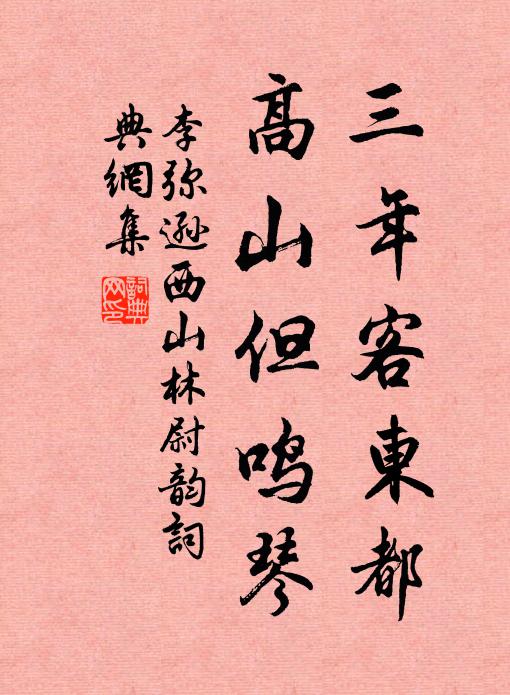 三年客東都
高山但鸣琴
李弥遜西山林尉韵詞
典網集
詞典网印